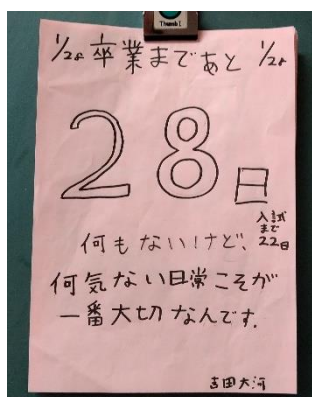 Thumbl
1/28 卒業まであと 1/28
28日
入試
まで
22日
何もないけど、
何気ない日常こそが
一番大切なんです.
吉田大河